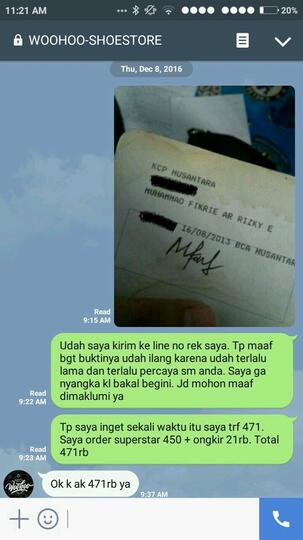 11:21 AM
20%
WOOHOO-SHOESTORE
Thu, Dec 8, 2016
KCP NUSANTARA
MUHAMMAD FIKRIE AR RIZKY E
16/08/2013 BCA NUSANTAR
Read
9:15 AM
Udah saya kirim ke line no rek saya. Tp maaf
bgt buktinya udah ilang karena udah terlalu
lama dan terlalu percaya sm anda. Saya ga
nyangka kl bakal begini. Jd mohon maaf
dimaklumi ya
Read
9:22 AM
Tp saya inget sekali waktu itu saya trf 471.
Saya order superstar 450 + ongkir 21rb. Total
471rb
Read
9:23 AM
WooHoo
Ok k ak 471rb ya
9:37 AM